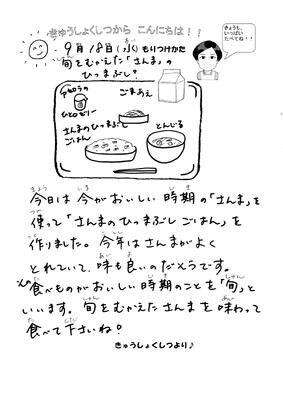 きゅうしょくしつから こんにちは！！
きょうも、
いっぱい
たべてね！！
9月18日(水)もりつけかた
旬をむかえた「さんま」の
ひつまぶし？
ごまあえ
ひとくちゼリー
さんまのひつまぶし
ごはん
とんじる
今日は今がおいしい時期の「さんま」を
使って「さんまのひつまぶしごはん」を
作りました。今年はさんまがよく
とれていて、味も良いのだそうです。
食べものがおいしい時期のことを「旬」と
いいます。旬をむかえたさんまを味わって
食べて下さいね？
きゅうしょくしつより♪